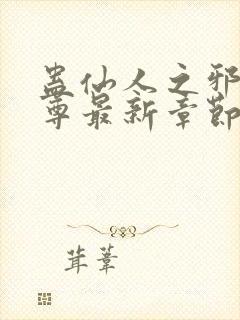 蛊仙人之邪
尊最新章節
茸荖